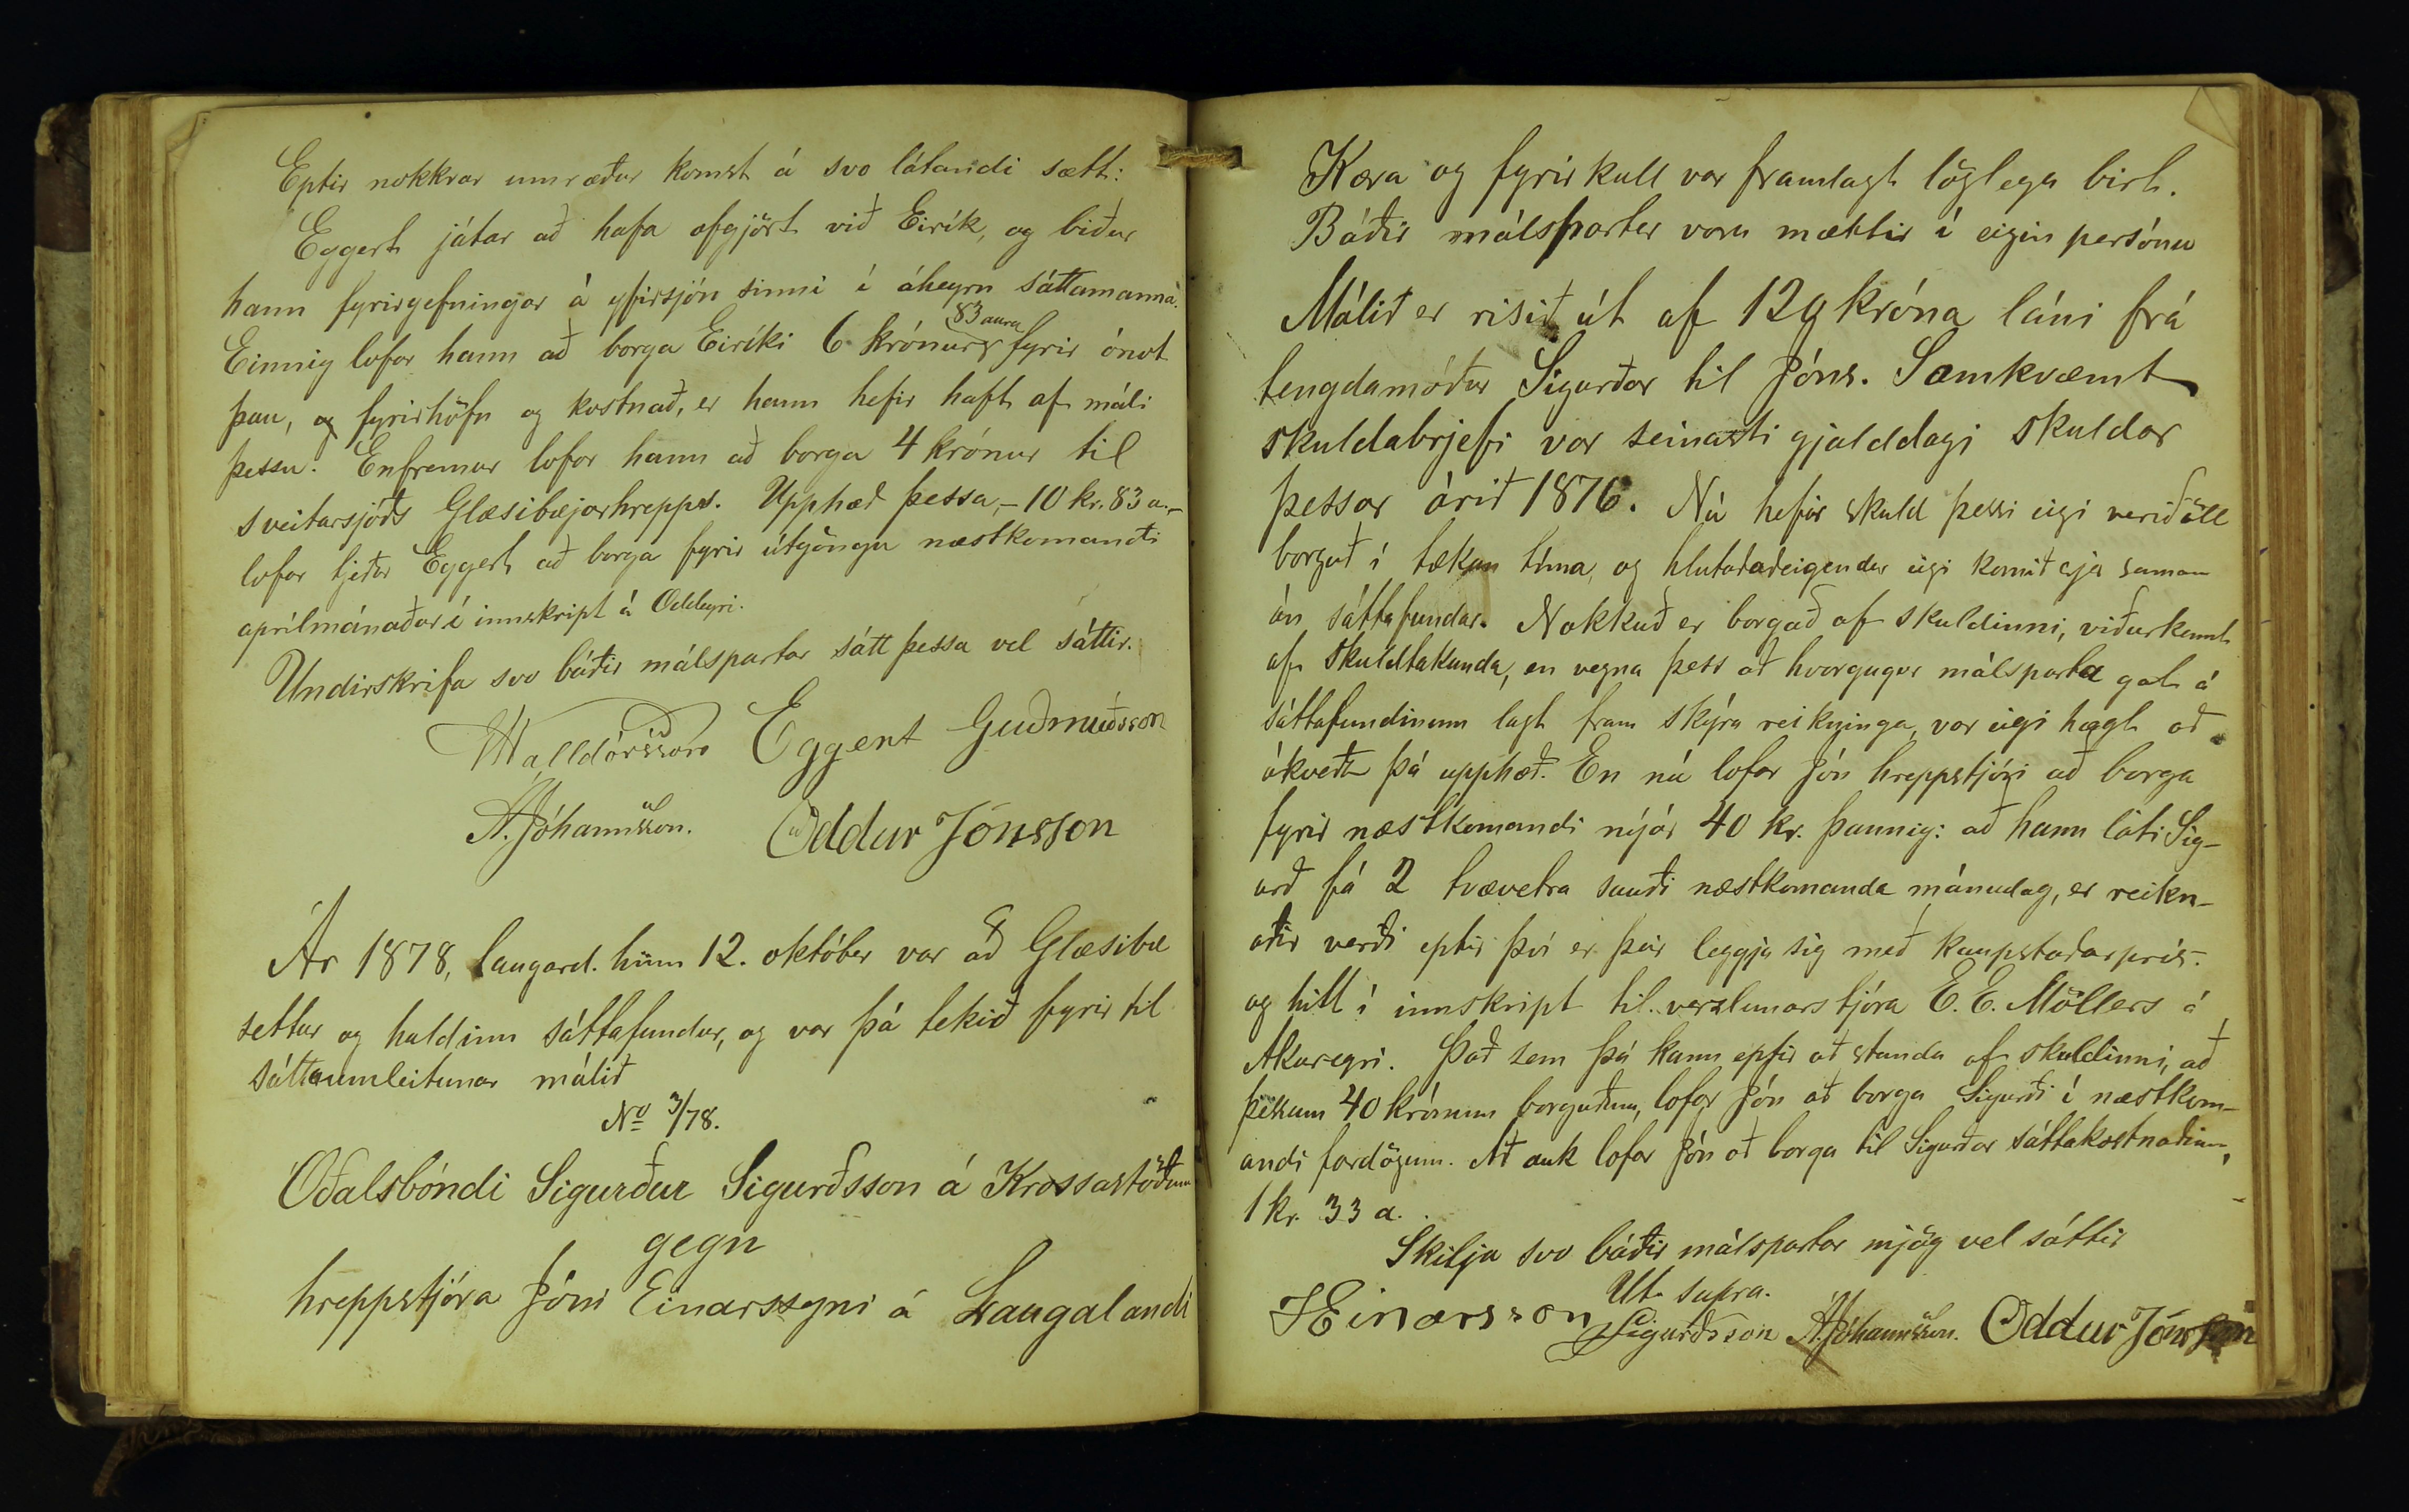 Eptir nokkrar umræður komst á svo látandi sætt:
Eggert játar að hafa ofgjört við Eirík, og biður
hann fyrirgefningar á yfirsjón sinni í áheyrn sáttamanna.
83 aura
Einnig lofar hann að borga Eiríki 6 krónur fyrir ónot
þau, og fyrirhöfn og kostnað, er hann hefir haft af máli
þessu. Enfremur lofar hann að borga 4 krónur til
sveitarsjóðs Glæsibæjarhrepps. Upphæð þessa, – 10 kr. 83 a. –
lofar tjeður Eggert að borga fyrir útgöngu næstkomandi
aprílmánaðar í innskript á Oddeyri.
Undirskrifa svo báðir málspartar sátt þessa vel sáttir.
Halldórsson Eggert Guðmundsson
A. Jóhannsson. Oddur Jónsson
Ár 1878, laugard. hinn 12. október var að Glæsibæ
settur og haldinn sáttafundur, og var þá tekið fyrir til
sáttaumleitunar málið
No 3/78.
Óðalsbóndi Sigurður Sigurðsson á Krossastöðum
gegn
hreppstjóra Jóni Einarssyni á Laugalandi
Kæra og fyrirkall var framlagt löglega birt.
Báðir málspartar voru mættir í eigin persónu
Málið er risið út af 129 króna láni frá
tengdamóður Sigurðar til Jóns. Samkvæmt
skuldabrjefi var seinasti gjalddagi skuldar
þessar árið 1876. Nú hefir skuld þessi eigi verið öll
borguð í tækan tíma, og hlutaðaðeigendur eigi komið sjer saman
án sáttafundar. Nokkuð er borgað af skuldinni, viðurkennt
af skuldtakanda, en vegna þess að hvorgugur málsparta gat á
sáttafundinum lagt fram skýra reikninga, var eigi hægt að
ákveða þá upphæð. En nú lofar Jón hreppstjóri að borga
fyrir næstkomandi nýjár 40 kr. þannig: að hann láti Sig-
urð fá 2 tvævetra sauði næstkomanda mánudag, er reikn-
aðir verði eptir því er þeir leggja sig með kaupstaðarprís.
og hitt í innskript til verzlunarstjóra E. E. Möllers á
Akureyri. Það sem þá kann eptir að standa af skuldinni, að
þessum 40 krónum borguðum, lofar Jón að borga Sigurði í næstkom-
andi fardögum. Að auk lofar Jón að borga til Sigurðar sáttakostnaðinn,
1 kr. 33 a.
Skilja svo báðir málspartar mjög vel sáttir
Ut supra.
J Einarsson S Sigurðsson A. Jóhannsson. Oddur Jónsson